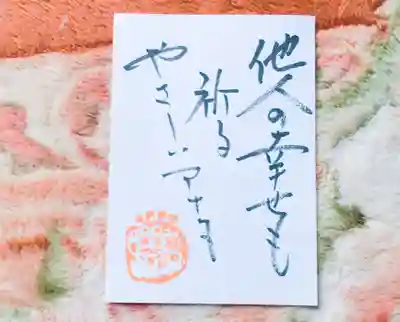 他人の幸せも
祈る
やさしいアナタ